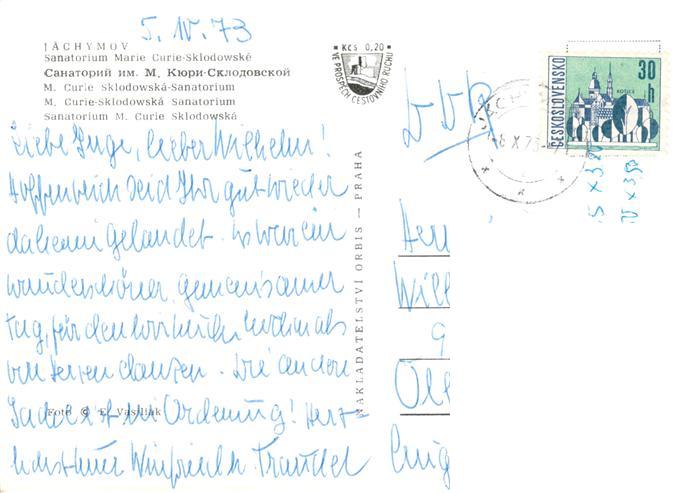 5. IV. 73
JÁCHYMOV
Sanatorium Marie Curie-Sklodowské
Санаторий им. М. Кюри-Склодовской
M. Curie Sklodowská-Sanatorium
M. Curie-Sklodowská Sanatorium
Sanatorium M. Curie Sklodowská
Kčs 0,20
VE PROSPĚCH CESTOVNÍHO RUCHU
ČESKOSLOVENSKO
30 h
KOŠICE
JÁCHY
X 73
DDR
Liebe Inge, lieber Wilhelm!
Hoffentlich seid Ihr gut wieder
daheim gelandet. Es war ein
wunderschöner, gemeinsamer
Tag, für den wir Euch nochmals
von Herzen danken. Die andere
Sache ist in Ordnung! Herz-
lichst Eure Winfried u. Traudel
Foto © E. Vasiliak
NAKLADATELSTVÍ ORBIS — PRAHA
Herr
Will
9
Öl